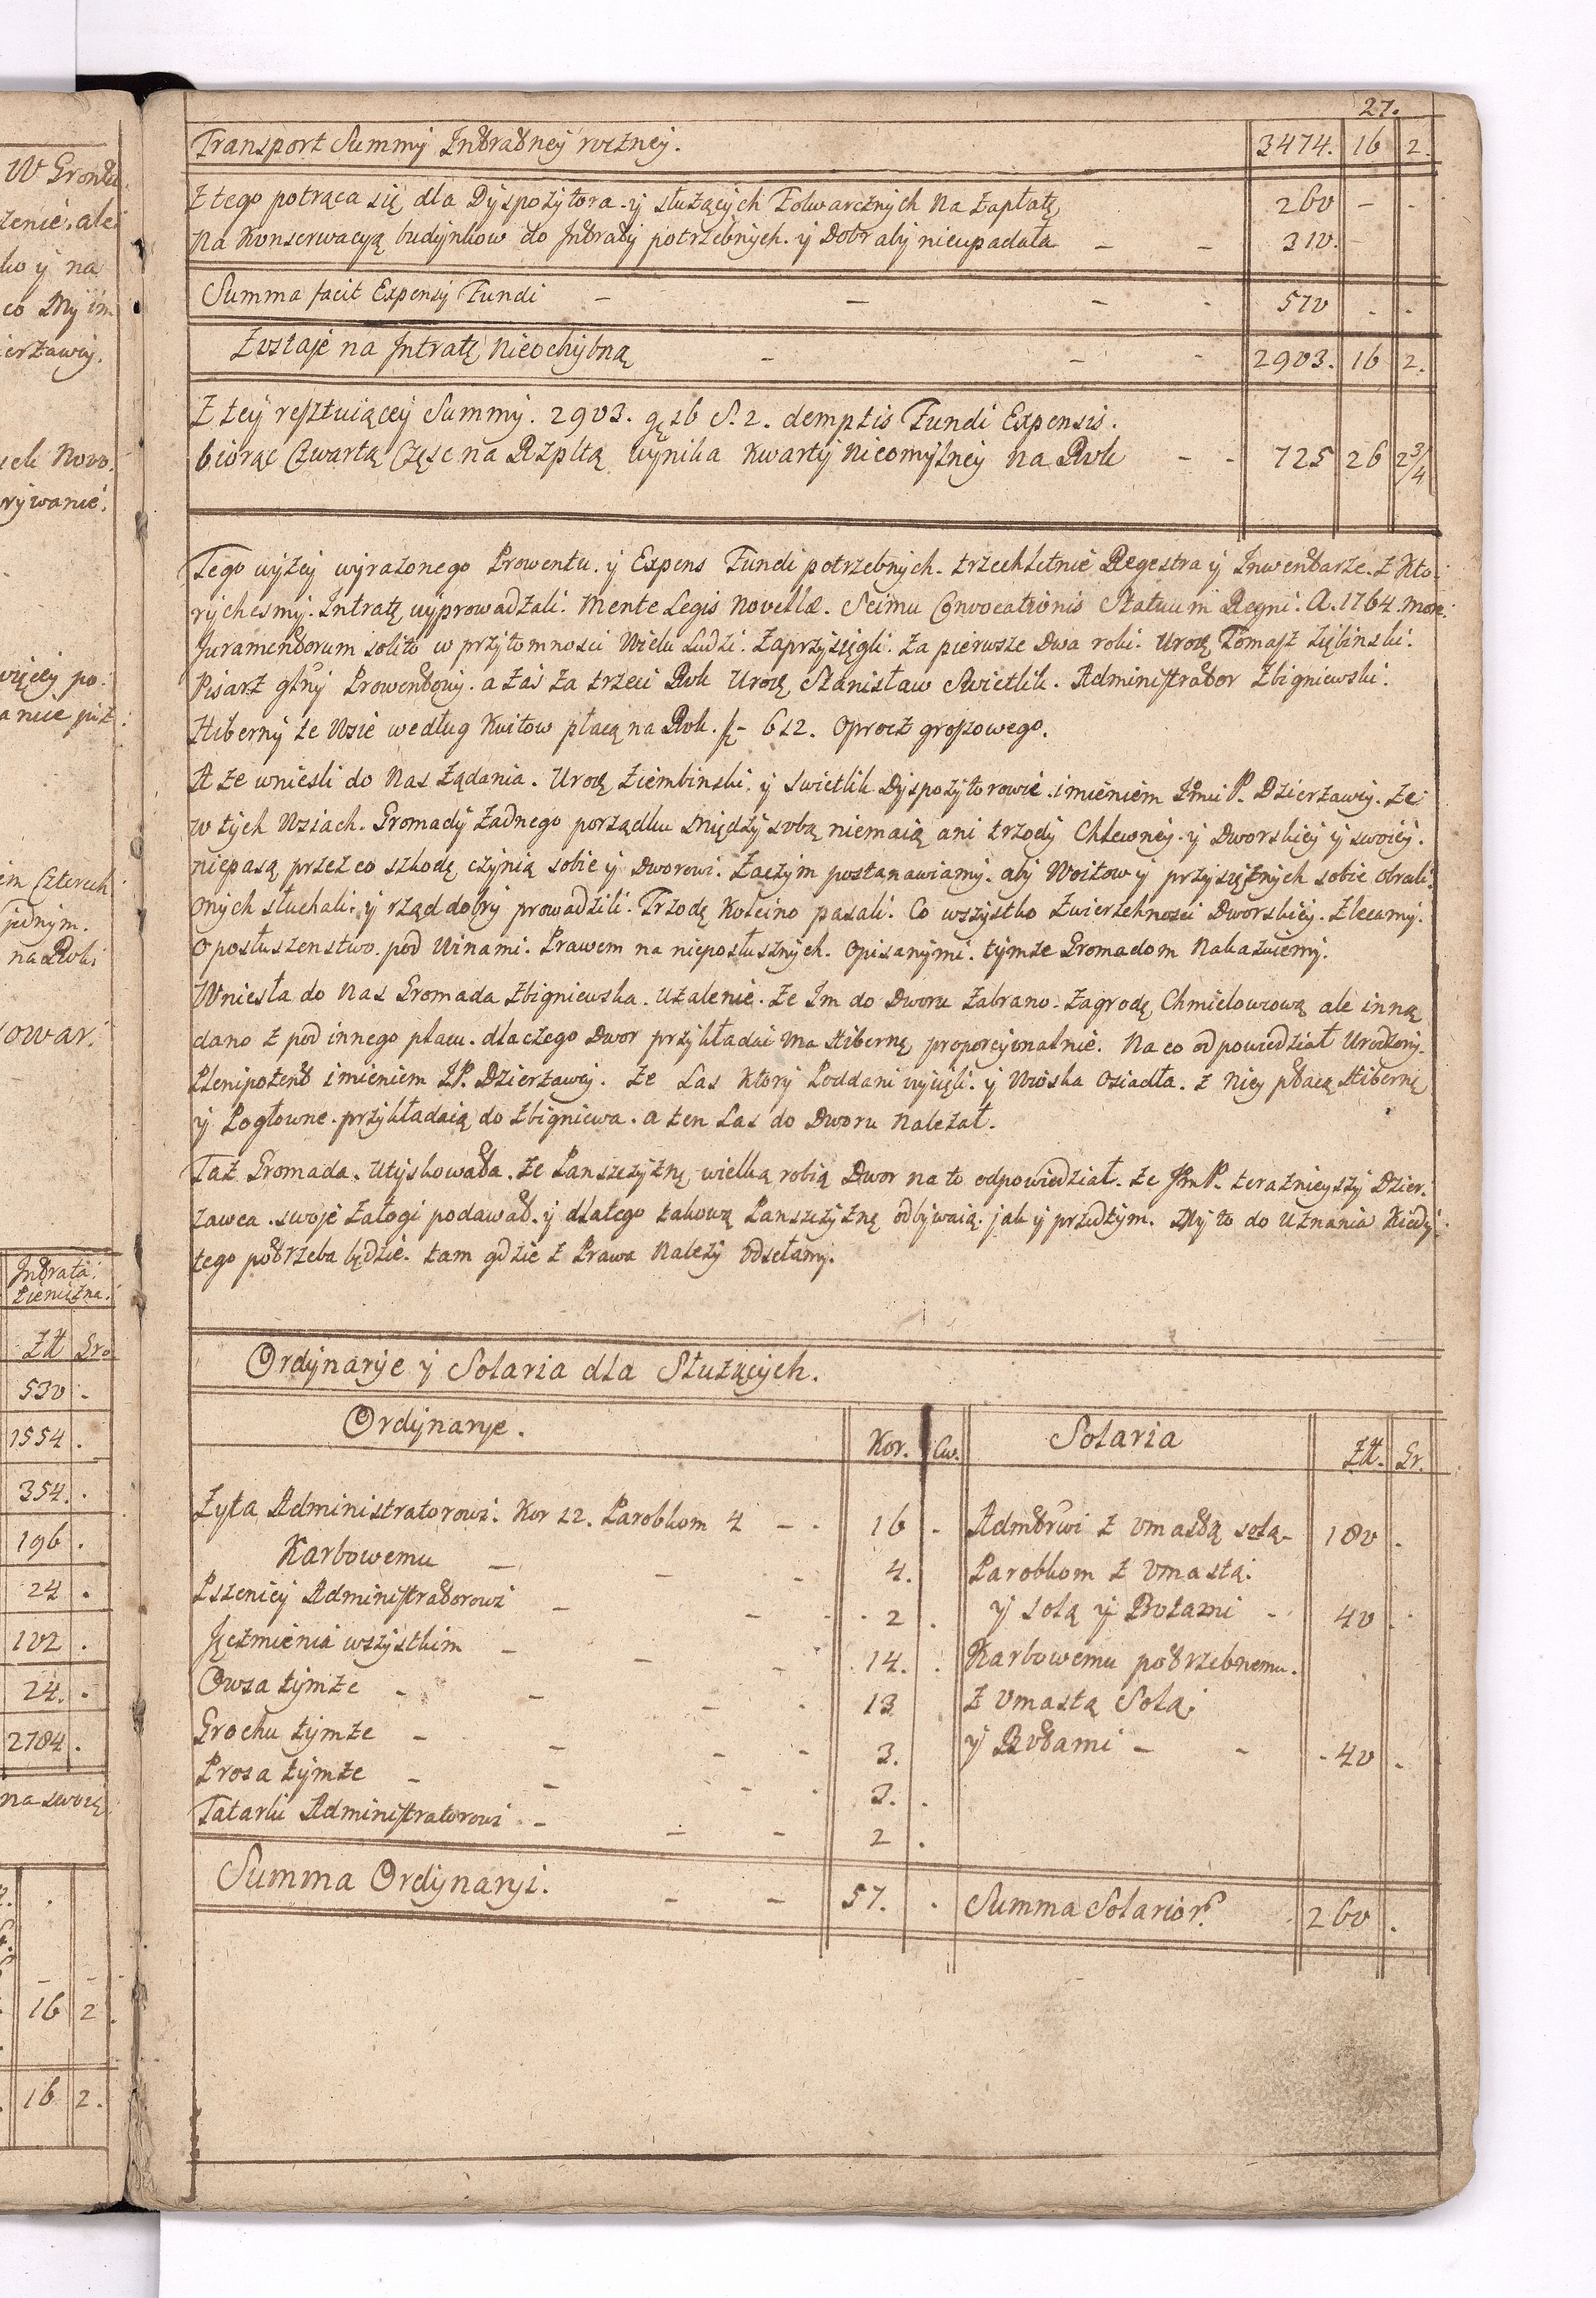 27.
Transport Summy Intratney roczney. 3474. 16 2.
Z tego potrąca się dla Dyspozytora y służących Folwarcznych na Zapłatę 260 - -
Na Konserwacyą budynkow do Intraty potrzebnych. y Dobr aby nieupadała - - 310. -
Summa facit Expensy Fundi - - - - 570 . .
Zostaje na Intratę Nieochybną - - - 2903. 16 2.
Z tey resztuiącey Summy. 2903. g. 16 S. 2. demptis Fundi Expensis.
biorąc Czwartą Częsc na Rzpltą wynika Kwarty Nieomylney na Rok - - 725 26 2 3/4
Tego wyżey wyrażonego Prowentu. y Expens Fundi potrzebnych. trzechletnie Regestra y Inwentarze. z Kto:
rychesmy. Intratę wyprowadzali. Mente Legis Novellæ. Seimu Convocationis Statuum Regni. A. 1764. more:
Juramentorum solito w przytomnosci Wielu Ludzi. Zaprzysięgli. Za pierwsze Dwa roki. Urodz. Tomasz Ziębinski.
Pisarz głny Prowentowy. a zaś za trzeci Rok Urodz. Stanisław Swietlik. Administrator Zbigniewski.
Hiberny te Wsie według Kwitow płacą na Rok. f. - 612. Oprocz groszowego.
A że wniesli do Nas Żądania. Urodz. Ziembinski. y Swietlik Dyspozytorowie. imieniem Jmci P. Dzierzawcy. że
w tych Wsiach. Gromady żadnego porządku między sobą niemaią ani trzody Chlewney. y Dworskiey y swoiey.
niepasą przez co szkodę czynią sobie y Dworowi. Zaczym postanawiamy. aby Woitow y przysiężnych sobie obrali.
Onych słuchali. y rząd dobry prowadzili. Trzodę Koleino pasali. Co wszystko Zwierzchnosci Dworskiey. Zlecamy.
O posłuszenstwo. pod Winami. Prawem na nieposłusznych. Opisanymi. tymże Gromadom Nakazuiemy.
Wniesła do Nas Gromada Zbigniewska. Użalenie. Że Im do Dworu Zabrano. Zagrodę Chmielowową ale inną
dano z pod innego placu. dlaczego Dwor przykładać ma Hibernę proporcyonalnie. Na co odpowiedział Urodzony.
Plenipotent imieniem JP. Dzierzawcy. Że Las Ktory Poddani wycięli. y Wioska Osiadła. z Niey płacą Hibernę
y Pogłowne. przykładaią do Zbigniewa. a ten Las do Dworu Należał.
Taż Gromada. Utyskowała. że Panszczyznę wielką robią Dwor na to odpowiedział. że Jm P. teraźnieyszy Dzier.
zawca. swoje Załogi podawał. y dlatego takową Panszczyznę odbywaią. jak y przedtym. My to do Uznania Kiedy
tego potrzeba będzie. tam gdzie z Prawa Należy odsełamy.
Ordynarye y Solaria dla Służących.
Ordynarye. Kor. Cw. Solaria Zł. Gr.
Zyta Administratorowi. Kor 12. Parobkom 4 - . 16 . Admtrwi z Vmastą solą - 180 .
Karbowemu - - - 4. Parobkom z Vmastą.
Pszenicy Administratorowi - - . 2 . y solą y Botami - 40 .
Jęczmienia wszystkim - - - 14. . Karbowemu potrzebnemu.
Owsa tymże - - - . 13 z Vmastą Solą.
Grochu tymże - - - - 3. y Botami - - . 40 .
Prosa tymże - - - . 3. .
Tatarki Administratorowi - - - 2 .
Summa Ordynaryi. - - 57. . Summa Solarior. 260 .